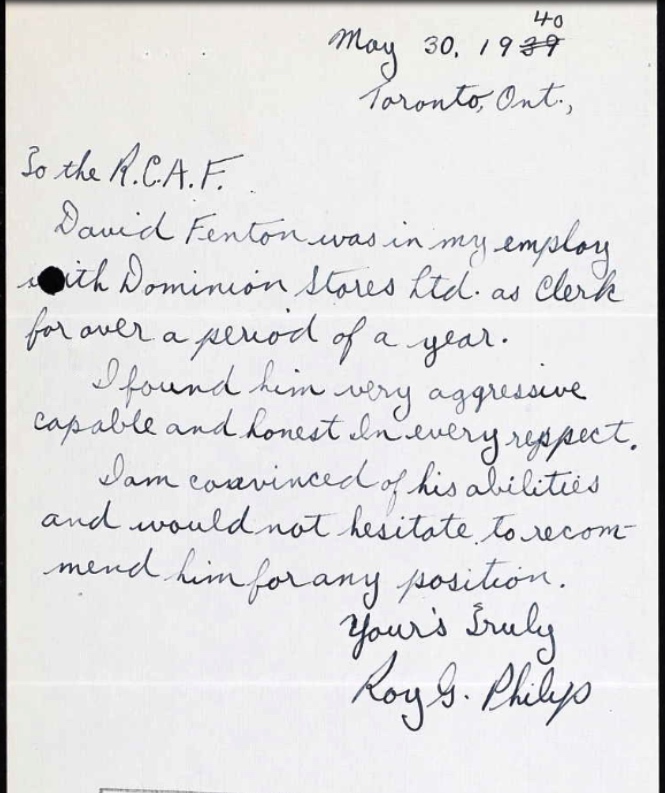 40
May 30, 1939
Toronto, Ont.,
To the R.C.A.F.
David Fenton was in my employ
with Dominion Stores Ltd. as Clerk
for over a period of a year.
I found him very aggressive
capable and honest In every reppect.
I am convinced of his abilities
and would not hesitate to recom-
mend him for any position.
Your's Truly
Roy G. Philip